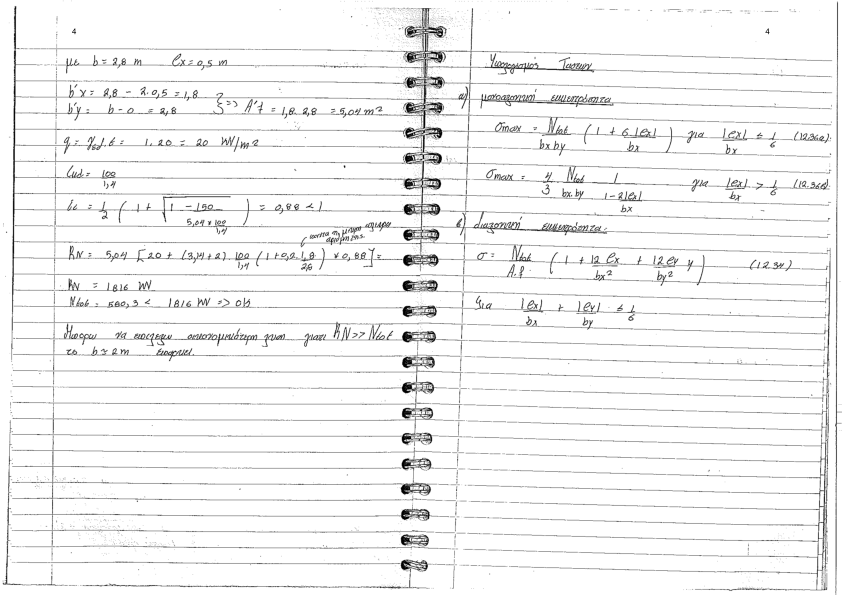 4
με b = 2,8 m ex = 0,5 m
b'x = 2,8 - 2.0,5 = 1,8
b'y = b - 0 = 2,8 } => A'f = 1,8. 2,8 = 5,04 m²
q = γεδ.t = 1. 20 = 20 kN/m²
Cud = 100/1,4
ic = 1/2 ( 1 + √(1 - 150/(5,04 x 100/1,4)) ) = 0,88 < 1
πάντα τη μικρή πλευρά
αριθμητής
RN = 5,04 [ 20 + (3,14+2) . 100/1,4 ( 1+0,2. 1,8/2,8 ) * 0,88 ] =
RN = 1816 kN
Ntot = 560,3 < 1816 kN => ok
Μπορω να επιλεξω οικονομικότερη λυση γιατι RN >> Ntot
το b = 2m επαρκεί.
4
Υπολογισμός Τασεων
α) μονοαξονική εκκεντρότητα
σmax = Ntot/(bx by) ( 1 + 6 |ex|/bx ) για |ex|/bx ≤ 1/6 (12.36α)
σmax = 4/3 Ntot/(bx by) 1/(1-2|ex|/bx) για |ex|/bx > 1/6 (12.36β)
β) διαξονική εκκεντρότητα.
σ = Ntot/A.f. ( 1 + 12 ex/bx² + 12ey/by² y ) (12.34)
για |ex|/bx + |ey|/by ≤ 1/6